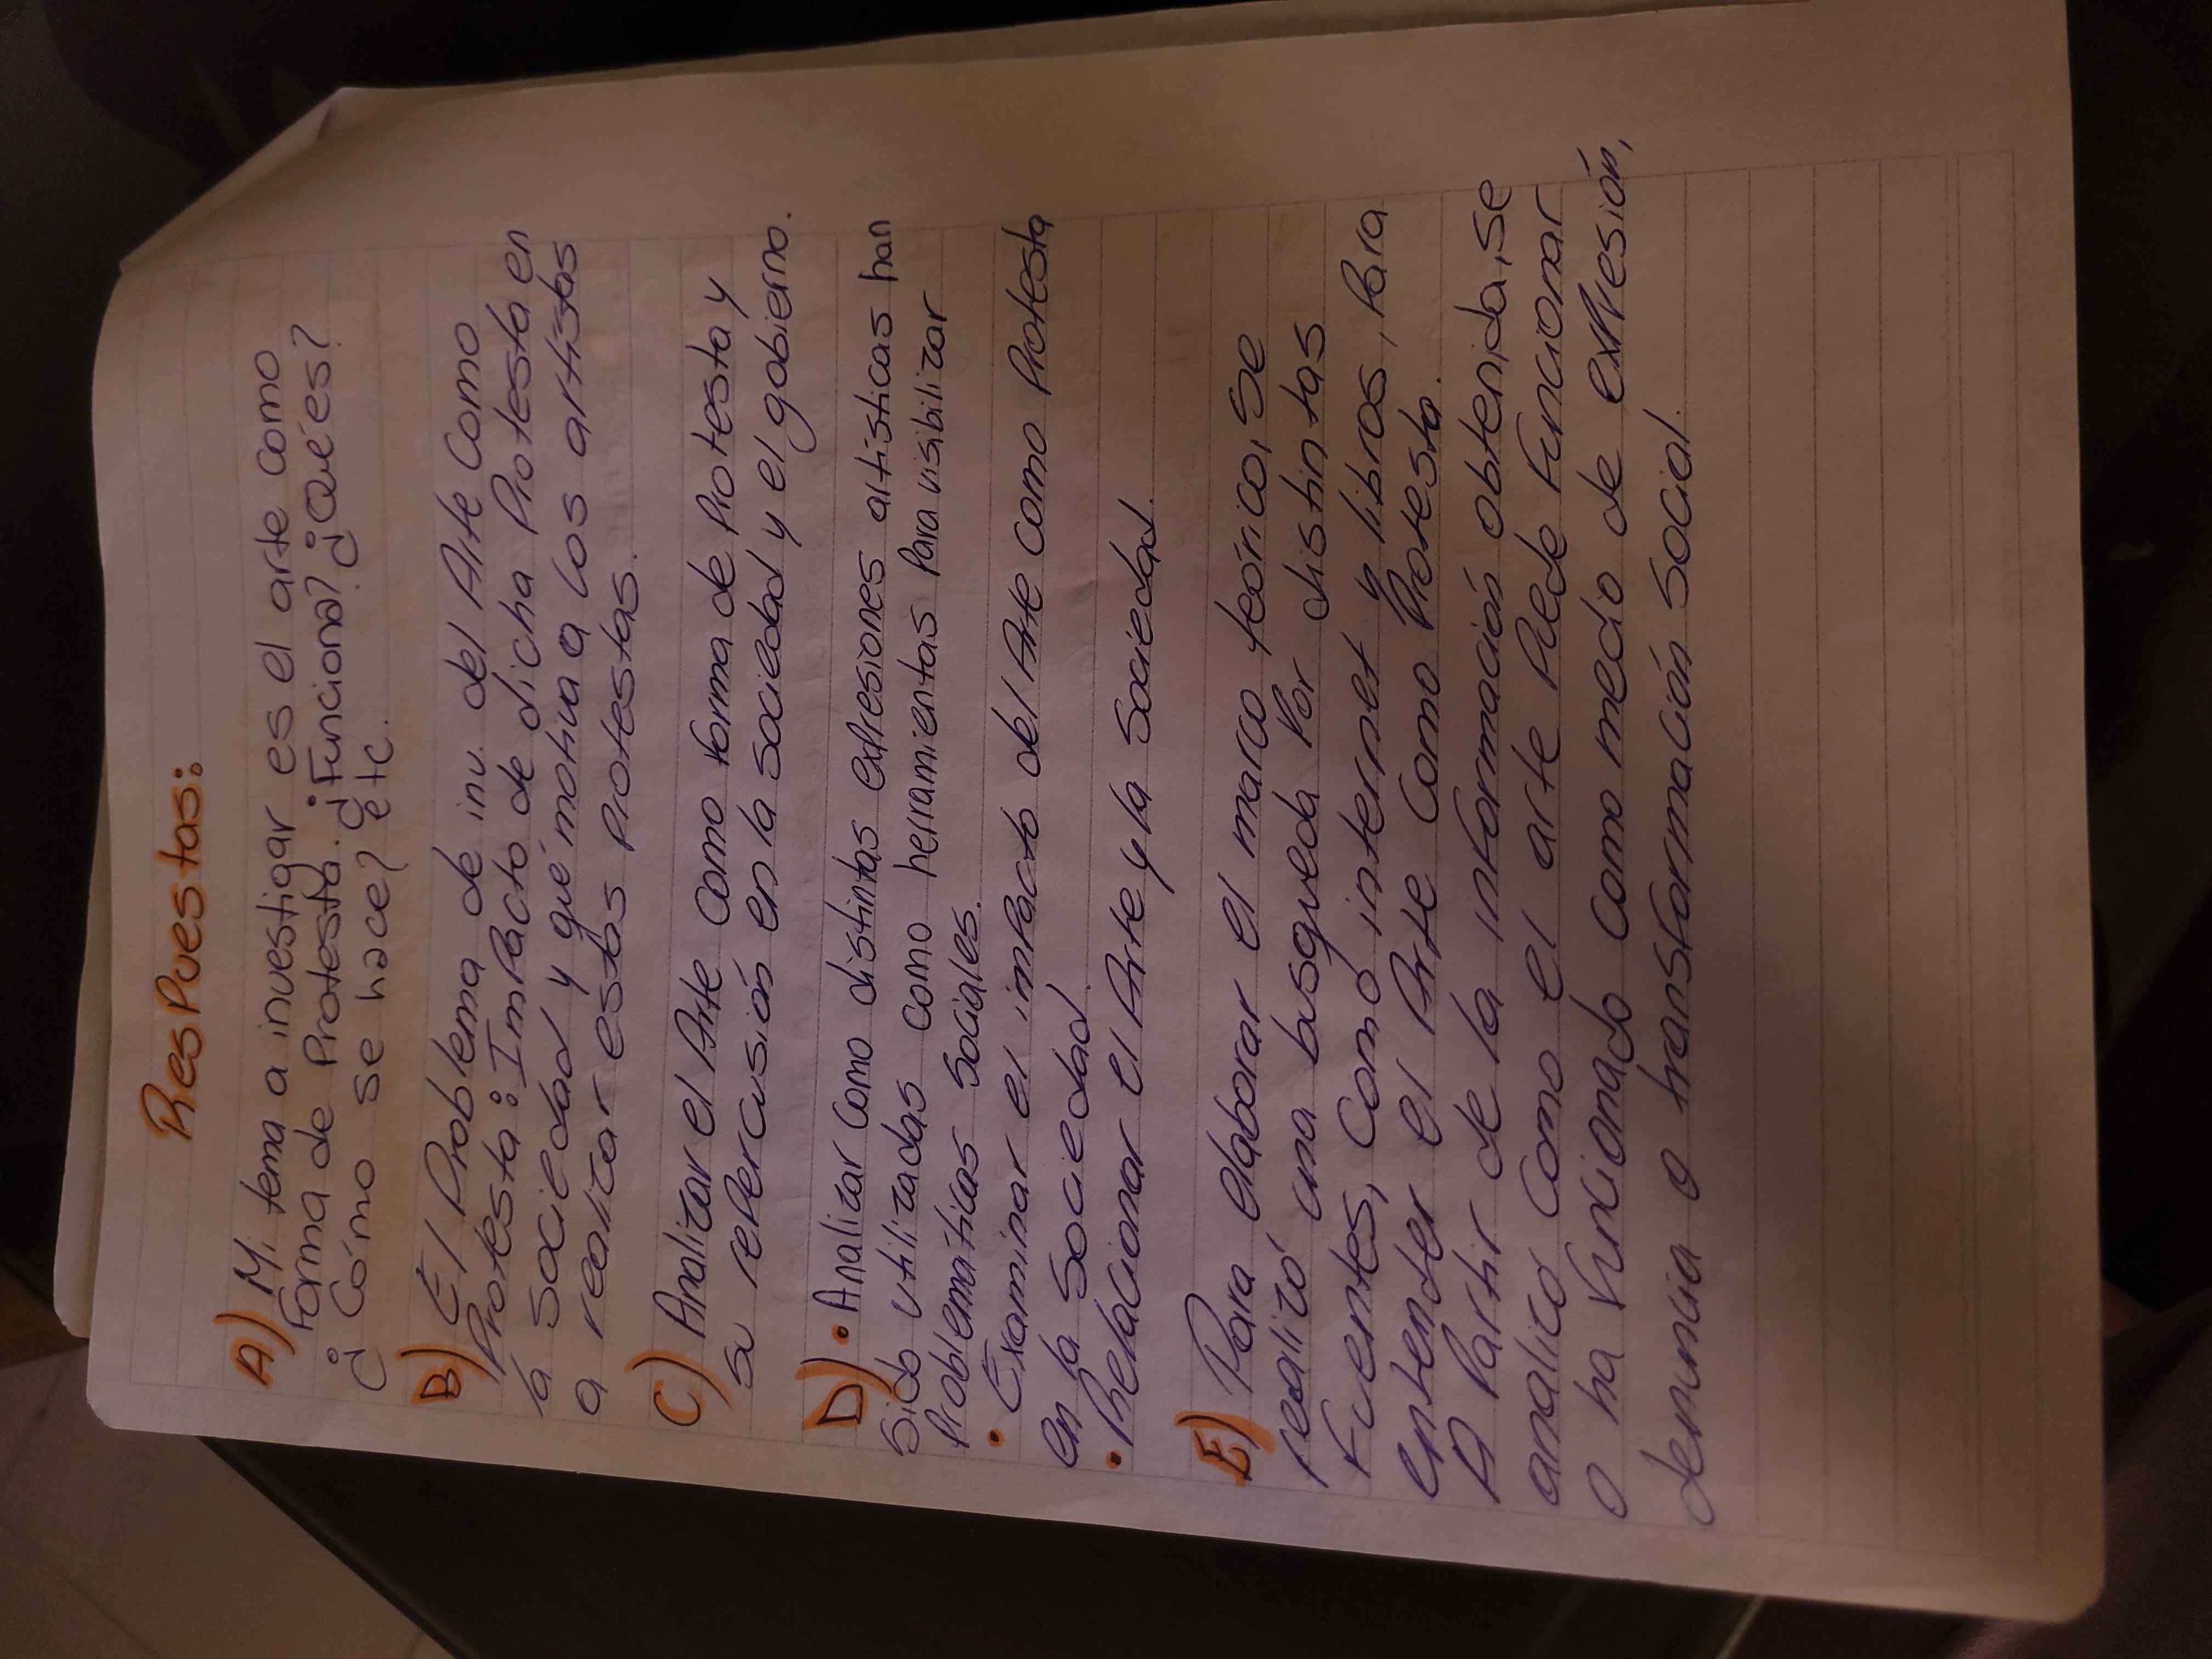 Respuestas:
A) Mi tema a investigar es el arte como
forma de Protesta. ¿Funciona? ¿Qué es?
¿Cómo se hace? etc.
B) El Problema de inv. del Arte Como
Protesta: Impacto de dicha Protesta en
la sociedad y qué motiva a los artistas
a realizar estas Protestas.
C) Analizar el Arte como forma de Protesta y
su repercusión en la sociedad y el gobierno.
D) • Analizar como distintas expresiones artísticas han
sido utilizadas como herramientas para visibilizar
Problemáticas sociales.
• Examinar el impacto del Arte como Protesta
en la sociedad.
• Relacionar el Arte y la sociedad.
E) Para elaborar el marco teórico, se
realizó una busqueda Por distintas
Fuentes, como internet y libros, Para
entender el Arte como Protesta.
A Partir de la información obtenida, se
analizó como el arte Puede Funcionar
o ha Funcionado como medio de expresión,
denuncia o transformación social.